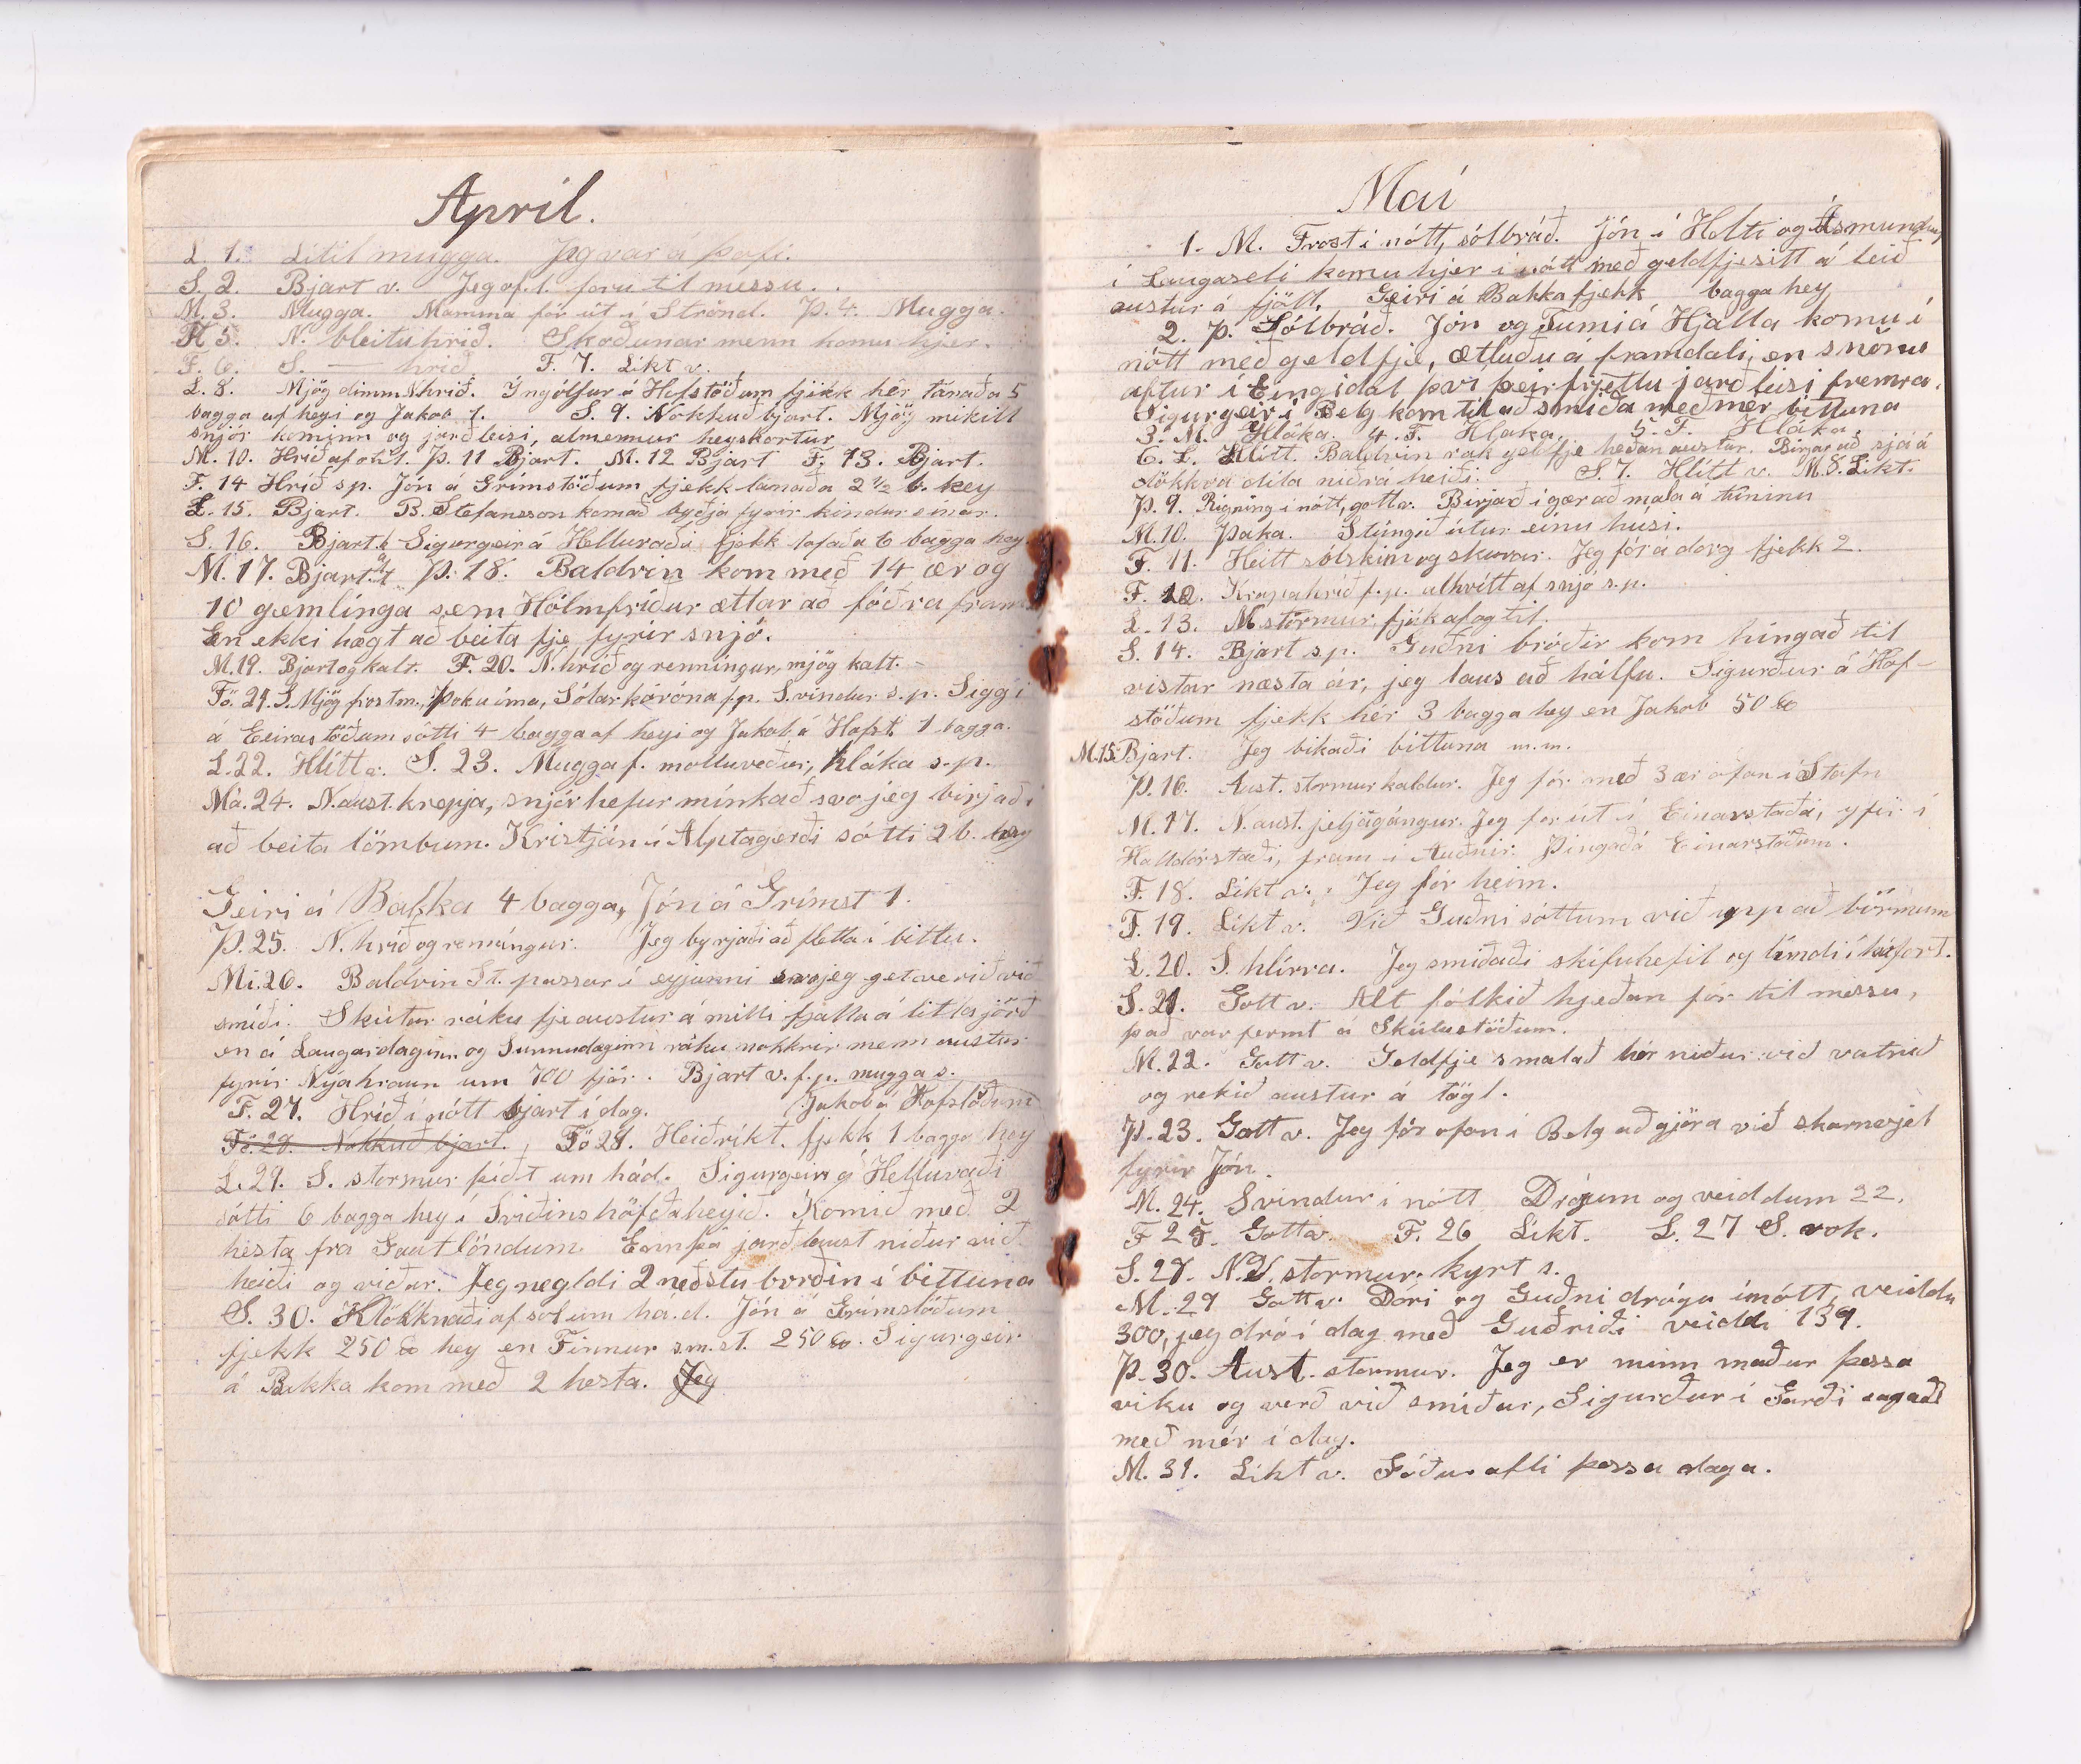 April.
L. 1. Lítil mugga. Jeg var á þófi.
S. 2. Bjart v. Jeg of. l. foru til messu.
M. 3. Mugga. Mamma fór út í Strönd. Þ. 4. Mugga.
M 5. N. bleituhríð. Skoðunar menn komu hjer.
F. 6. S. — hríð. F. 7. Líkt v.
L. 8. Mjög dimm N hríð. Íngólfur á Hofstöðum fjekk hér lánaða 5
bagga af heyi og Jakob 1. S. 9. Nokkuð bjart. Mjög mikill
snjór kominn og jarðleisi, almennur heyskortur
M. 10. Hríð af okt. Þ. 11 Bjart. M. 12 Bjart F. 13. Bjart.
F. 14 Hríð sp. Jón á Grímstöðum fjekk lánaða 2 1/2 b. hey
L. 15. Bjart. B. Stefánsson kom að byðja fyrir kindur sinar.
S. 16. Bjart. Sigurgeir á Helluvaði fjekk lofaða 6 bagga hey
M. 17. Bjart. Þ. 18. Baldvin kom með 14 ær og
10 gemlínga sem Hólmfríður ættar að fóðra fram
En ekki hægt að beita fje fyrir snjó.
M. 19. Bjart og kalt. F. 20. N. hríð og renningur, mjög kalt. -
Fö. 21. S. Mjög frostm., Þokuíma, Sólarkóróna f.p. S. vindur s.p. Siggi
á Geirastöðum sótti 4 bagga af heyi og Jakob á Hofst. 1 bagga.
L. 22. Hlítt v. S. 23. Mugga f. molluveður, hláka s.p.
Má. 24. N. aust. krepja, snjór hefur mínkað svo jeg birjaði
að beita lömbum. Kristján í Alptagerði sótti 2 b. hey
Geiri á Bakka 4 bagga, Jón á Grímst 1.
Þ. 25. N. hríð og renníngur. Jeg byrjaði að fletta í bittu.
Mi. 26. Baldvin St. passar í eyjunni svo jeg get verið við
smíði. Skútur ráku fje austur á milli fjalla á litla jörð
en á Laugardaginn og Sunnudaginn ráku nokkrir menn austur
fyrir Nýahraun um 700 fjár. Bjart v. f.p. mugga s.
F. 27. Hríð í nótt bjart í dag. (Jakob á Hofstöðum
Fö. 28. Nokkuð bjart. Fö 28. Heiðríkt. fjekk 1 bagga hey
L. 29. S. stormur þíðt um hád. Sigurgeir á Helluvaði
sótti 6 bagga hey í Sviðinshöfðaheyið. Komið með 2
hesta fra Gautlöndum. Ennþá jarðlaust niður við
heiði og viður. Jeg negldi 2 neðstu borðin í bittuna
S. 30. Klökknaði af sól um há.d. Jón á Grímstöðum
fjekk 250 ℔ hey en Finnur s.m.st. 250 ℔. Sigurgeir
á Bakka kom með 2 hesta. Jeg
Maí
1. M. Frost i nótt, sólbráð. Jón í Holti og Ásmundur
í Laugaseli komu hjer i nótt með geldfje sitt á leið
austur á fjöll. Geiri á Bakka fjekk bagga hey
2. Þ. Sólbráð. Jón og Tumi á Hjalla komu í
nótt með geldfje, ætluðu á framdali, en snöru
aftur í Eingidal því þeir frjettu jarðleisi fremra.
Sigurgeir í Belg kom til að smíða með mér bittuna
3. M. Hláka. 4. F. Hláka. 5. F. Hláka.
6. L. Hlítt. Baldvin rak geldfje héðan austur. Birjar að sjá á
dökkva díla niðrá heiði. S. 7. Hlítt v. M. 8. Líkt.
Þ. 9. Rigning i nótt, gott v. Birjað í gær að mala á túninu
M. 10. Þoka. Stúngið útur einu húsi.
F. 11. Heitt sólskin og skurar. Jeg fór á dorg fjekk 2.
F. 12. Krapahríð f.p. alhvítt af snjó s.p.
L. 13. N stormur, fjúk af og til.
S. 14. Bjart s.p. Guðni bróðir kom híngað til
vistar næsta ár, jeg laus að hálfu. Sigurður á Hof-
stöðum fjekk hér 3 bagga hey en Jakob 50 ℔
M. 15. Bjart. Jeg bikaði bittuna m.m.
Þ. 16. Aust. stormur kaldur. Jeg fór með 3 ær ofan í Stafn
M. 17. N. aust. jeljagángur. Jeg for út í Einarstaði, yfir í
Halldórstaði, fram í Auðnir. Þingað á Einarstöðum.
F. 18. Líkt v. Jeg fór heim.
F. 19. Líkt v. Við Guðni sóttum við upp að börmum
L. 20. S. hlírra. Jeg smíðaði skífuhefil og límdi
S. 21. Gott v. Alt fólkið hjeðan fór til messu,
það var fermt á Skútustöðum.
M. 22. Gott v. Geldfje smalað hér niður við vatnið
og rekið austur á tögl.
Þ. 23. Gott v. Jeg fór ofan í Belg að gjöra við skarnvjel
fyrir Jón.
M. 24. S vindur i nótt Drógum og veiddum 22.
F 25. Gott v. F. 26 Líkt. L. 27 S. rok.
S. 28. N.V. stormur. kyrt s.
M. 29 Gott v. Dóri og Guðni drógu í nótt, veiddu
300, jeg dró í dag með Guðriði veiddi 139.
Þ. 30. Aust. stormur. Jeg er minn maður þessa
viku og verð við smíðar, Sigurður í Garði sagaði
með mér í dag.
M. 31. Líkt v. Góður afli þessa daga.